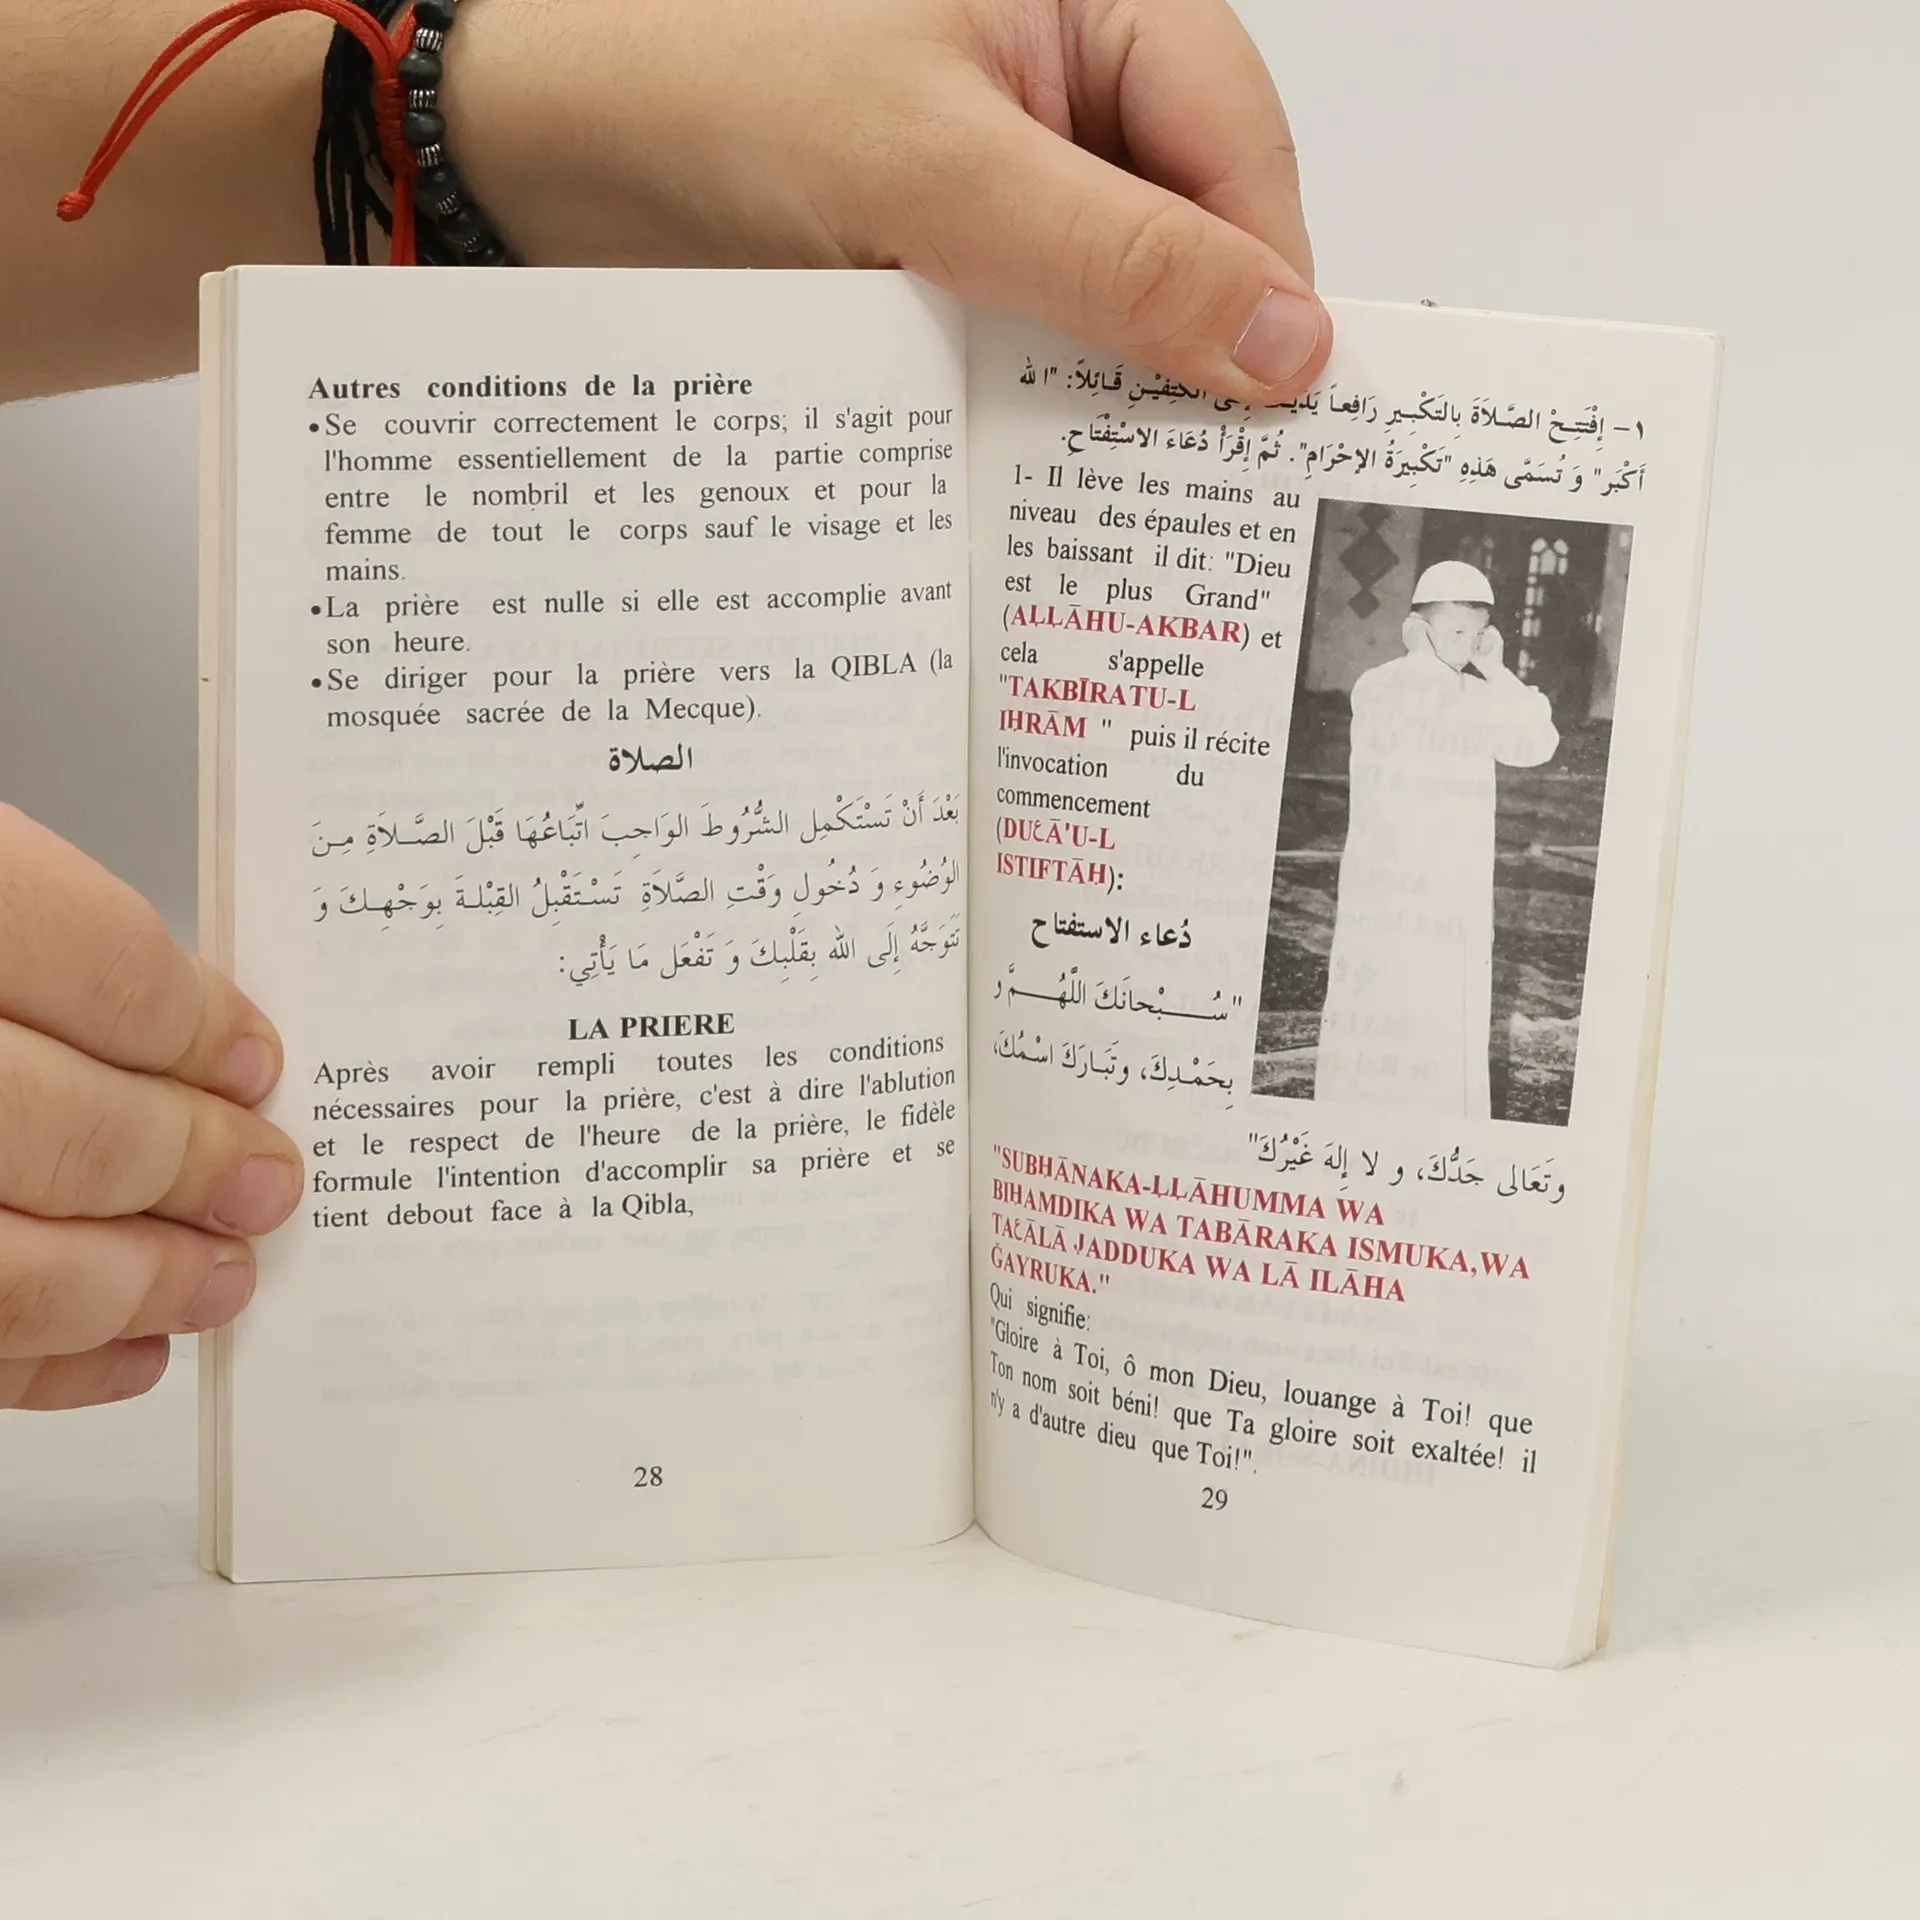 Autres conditions de la prière
•Se couvrir correctement le corps; il s'agit pour
l'homme essentiellement de la partie comprise
entre le nombril et les genoux et pour la
femme de tout le corps sauf le visage et les
mains.
•La prière est nulle si elle est accomplie avant
son heure.
•Se diriger pour la prière vers la QIBLA (la
mosquée sacrée de la Mecque).
الصلاة
بَعْدَ أَنْ تَسْتَكْمِل الشُّرُوطَ الوَاجِبَ اتِّبَاعُهَا قَبْلَ الصَّلاَةِ مِنَ
الوُضُوءِ وَ دُخُولِ وَقْتِ الصَّلاَةِ تَسْتَقْبِلُ القِبْلةَ بِوَجْهِكَ وَ
تَتَوَجَّهُ إِلَى الله بِقَلْبِكَ وَ تَفْعَل مَا يَأْتِي:
LA PRIERE
Après avoir rempli toutes les conditions
nécessaires pour la prière, c'est à dire l'ablution
et le respect de l'heure de la prière, le fidèle
formule l'intention d'accomplir sa prière et se
tient debout face à la Qibla,
28
١ – إِفْتَتِحْ الصَّلاَةَ بِالتَكْبِيرِ رَافِعاً الكَتِفَيْنِ قَائِلاً: "الله
أَكْبَر" وَ تُسَمَّى هَذِهِ "تَكْبِيرَةُ الإِحْرَامِ". ثُمَّ إِقْرَأْ دُعَاءَ الاسْتِفْتَاحِ.
1- Il lève les mains au
niveau des épaules et en
les baissant il dit: "Dieu
est le plus Grand"
(AḶḶĀHU-AKBAR) et
cela s'appelle
"TAKBĪRATU-L
IḤRĀM " puis il récite
l'invocation du
commencement
(DUƐĀ'U-L
ISTIFTĀḤ):
دُعاء الاستفتاح
"سُبْحانَكَ اللَّهُمَّ و
بِحَمْدِكَ، وتَبَارَكَ اسْمُكَ،
وتَعَالى جَدُّكَ، و لا إِلهَ غَيْرُكَ"
"SUBḤĀNAKA-ḶḶĀHUMMA WA
BIḤAMDIKA WA TABĀRAKA ISMUKA,WA
TAƐĀLĀ JADDUKA WA LĀ ILĀHA
ĞAYRUKA."
Qui signifie:
"Gloire à Toi, ô mon Dieu, louange à Toi! que
Ton nom soit béni! que Ta gloire soit exaltée! il
n'y a d'autre dieu que Toi!".
29